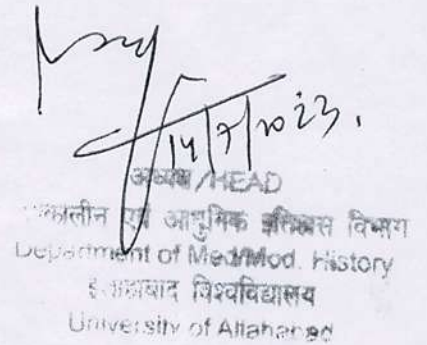 14/7/2023.
अध्यक्ष/HEAD
एवं आधुनिक इतिहास विभाग
Department of Med/Mod. History
इलाहाबाद विश्वविद्यालय
University of Allahabad